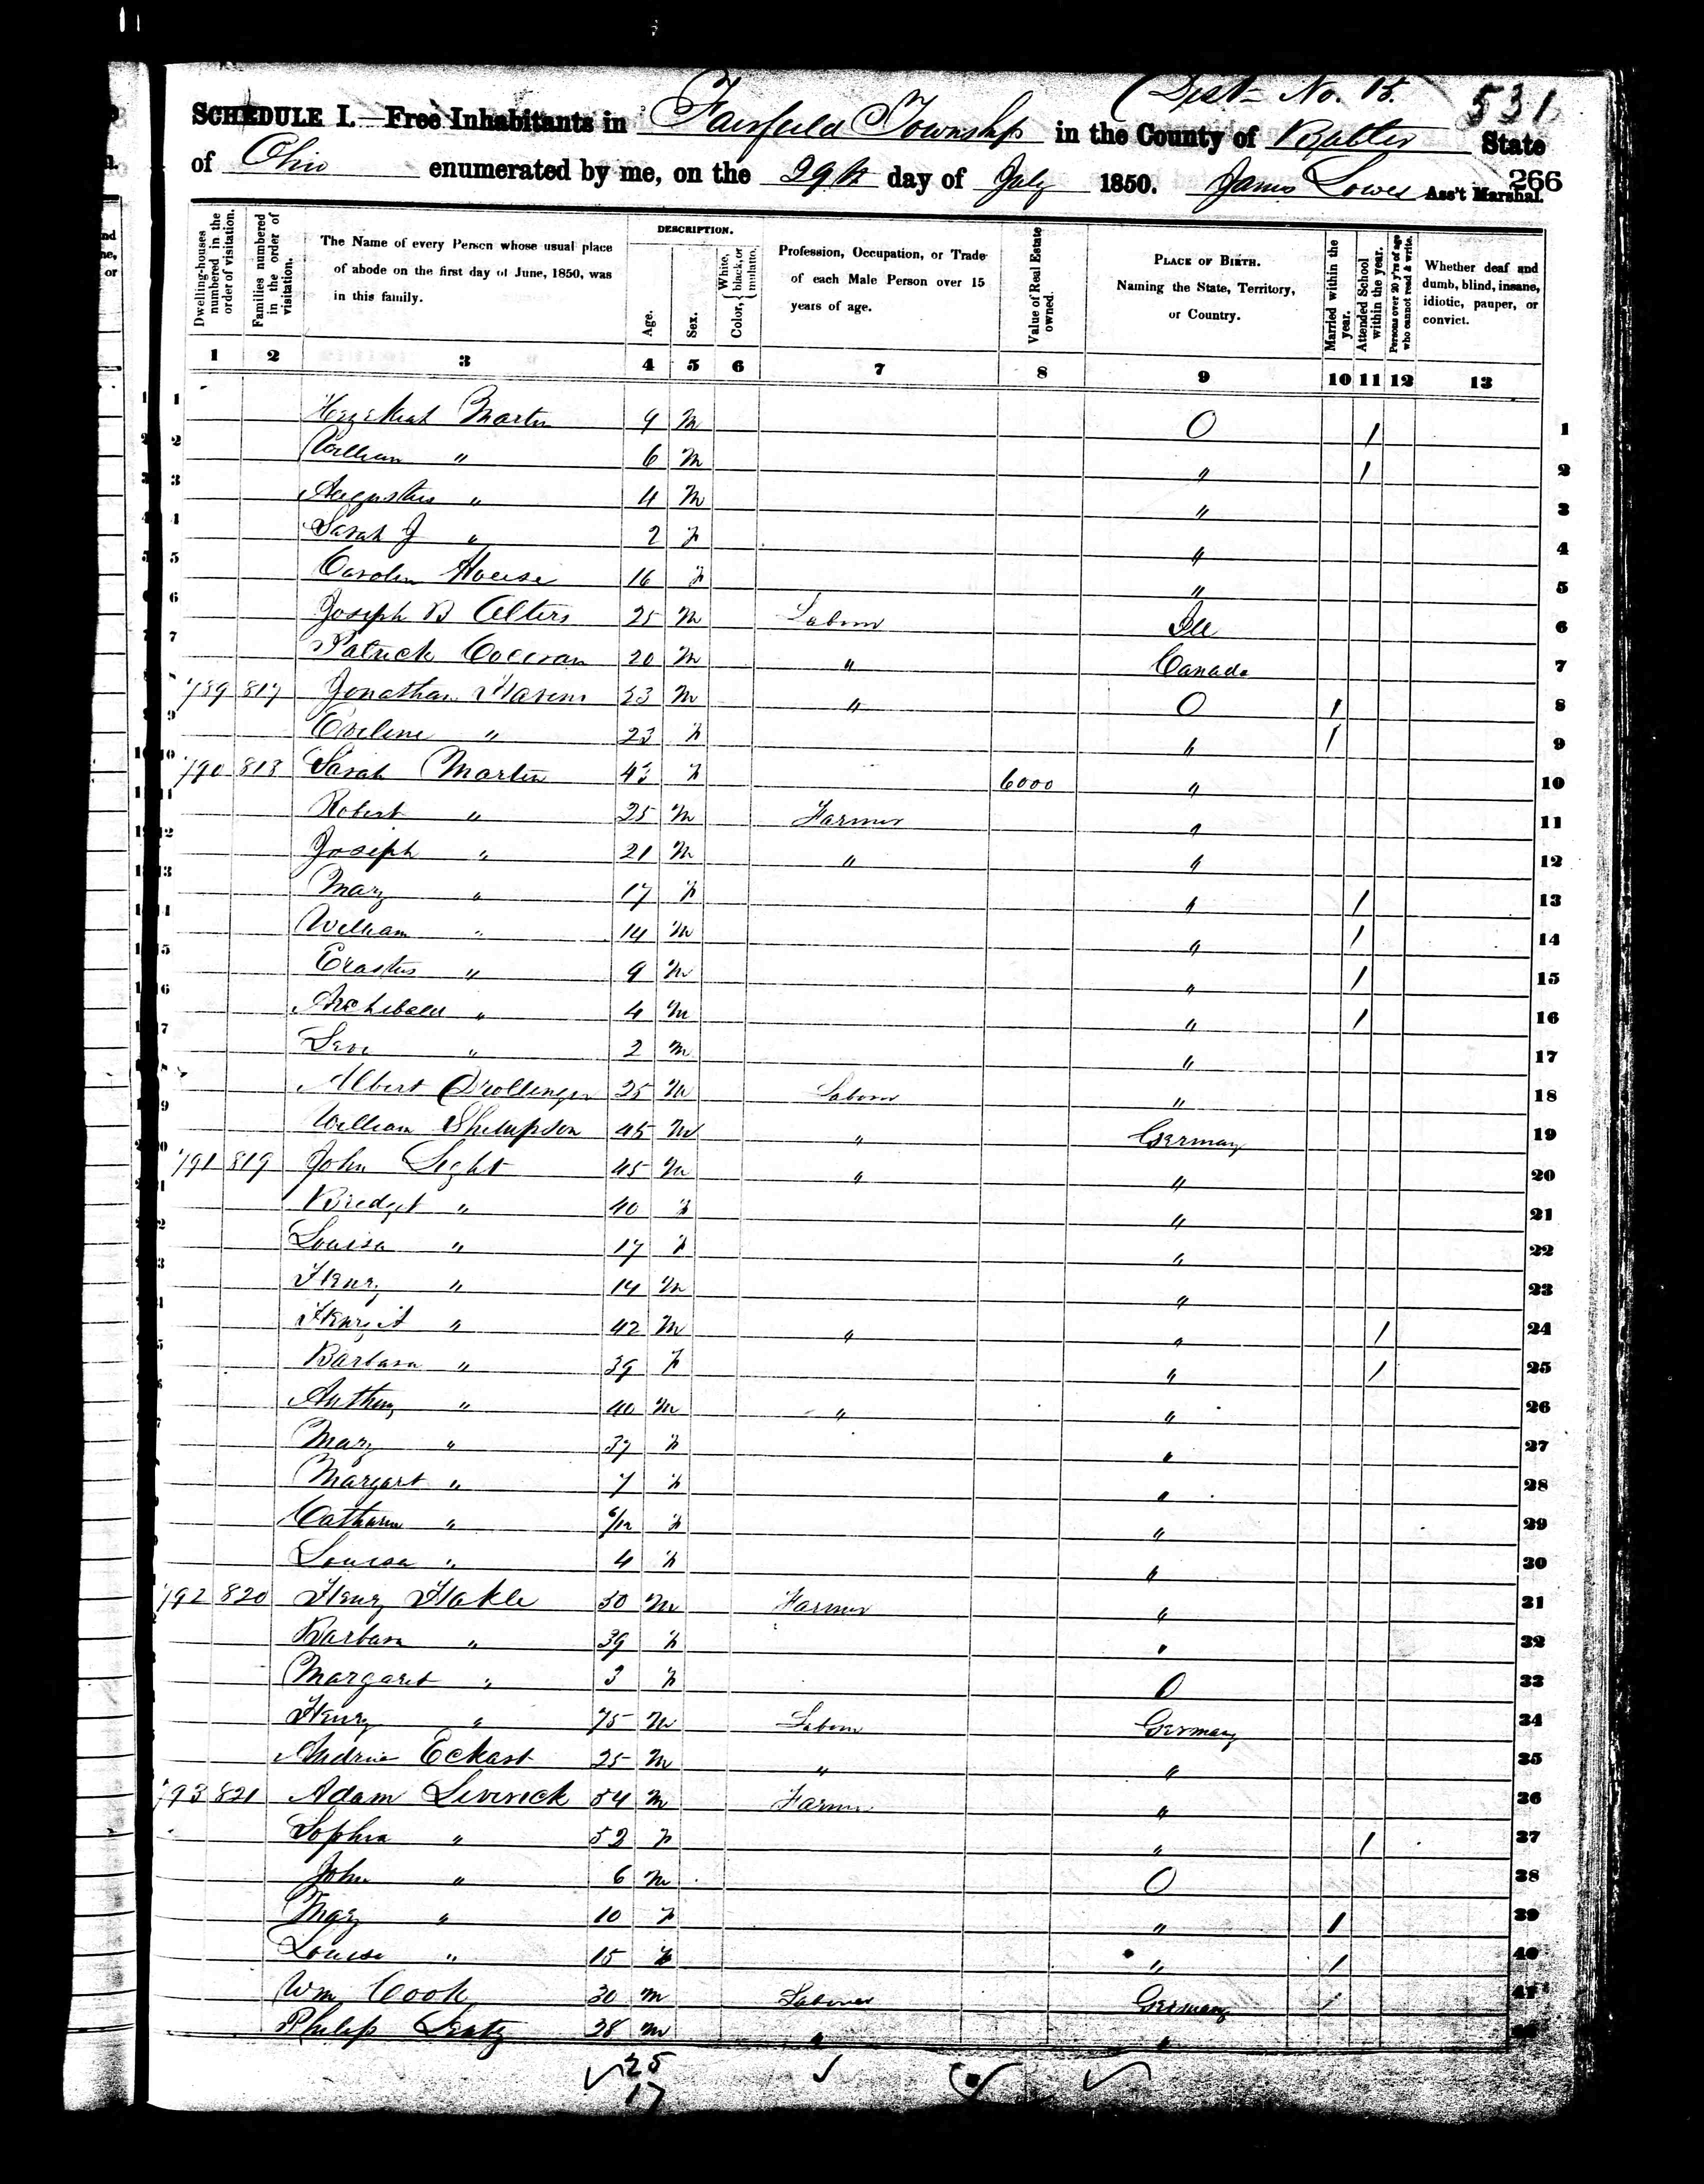 (Dist- No. 15.
531
SCHEDULE I.—Free Inhabitants in Fairfield Township in the County of Butler State
of Ohio enumerated by me, on the 29th day of July 1850. James Lowes Ass't Marshal.
266
Dwelling-houses numbered in the order of visitation.
Families numbered in the order of visitation.
The Name of every Person whose usual place of abode on the first day of June, 1850, was in this family.
DESCRIPTION.
Age.
Sex.
Color, { White, black, or mulatto.
Profession, Occupation, or Trade of each Male Person over 15 years of age.
Value of Real Estate owned.
PLACE OF BIRTH. Naming the State, Territory, or Country.
Married within the year.
Attended School within the year.
Persons over 20 y'rs of age who cannot read & write.
Whether deaf and dumb, blind, insane, idiotic, pauper, or convict.
1 2 3 4 5 6 7 8 9 10 11 12 13
1 Hezekiah Martin 9 M O 1 1
2 William " 6 M " 1 2
3 Augustus " 4 M " 3
4 Sarah J " 2 F " 4
5 Carolin House 16 F " 5
6 Joseph B Alters 25 M Labour Ill 6
7 Patrick 20 M " Canada 7
789 817 Jonathan 23 M " O 1 8
9 Eveline " 23 F " 1 9
790 818 Sarah Martin 43 F 6000 " 10
Robert " 25 M Farmer " 11
12 Joseph " 21 M " " 12
13 Mary " 17 F " 1 13
William " 14 M " 1 14
Erastus " 9 M " 1 15
Archibald " 4 M " 1 16
Levi " 2 M " 17
Albert Drollinger 25 M Labour " 18
William 45 M " Germany 19
791 819 John Light 45 M " " 20
Bridget " 40 F " 21
Louisa " 17 F " 22
Henry " 14 M " 23
Henry A " 42 M " " 1 24
Barbara " 39 F " 1 25
Anthony " 40 M " " 26
Mary " 37 F " 27
Margart " 7 F " 28
Catharin " 6/12 F " 29
Louisa " 4 F " 30
792 820 Henry Hakle 50 M Farmer " 31
Barbara " 39 F " 32
Margaret " 3 F O 33
Henry " 75 M Labour Germany 34
Andrew Eckart 25 M " " 35
793 821 Adam Liverick 54 M Farmer " 36
Sophia " 52 F " 1 37
John " 6 M O 38
Mary " 10 F " 1 39
Louisa " 15 F " 1 40
Wm Cook 30 M Labourer Germany 1 41
Philip Lentz 28 M " "
25
17